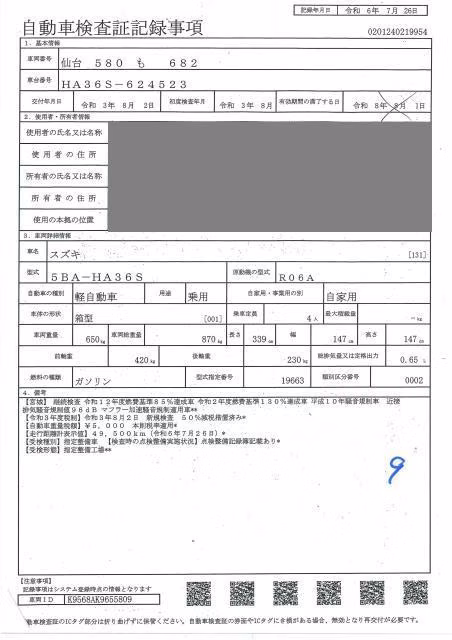 記録年月日 令和 6年 7月 26日
自動車検査証記録事項
0201240219954
1．基本情報
車両番号 仙台 580 も 682
車台番号 HA36S-624523
交付年月日 令和 3年 8月 2日 初度検査年月 令和 3年 8月 有効期間の満了する日 令和 8年 8月 1日
2．使用者・所有者情報
使用者の氏名又は名称
使用者の住所
所有者の氏名又は名称
所有者の住所
使用の本拠の位置
3．車両詳細情報
車名 スズキ [131]
型式 5BA-HA36S 原動機の型式 R06A
自動車の種別 軽自動車 用途 乗用 自家用・事業用の別 自家用
車体の形状 箱型 [001] 乗車定員 4人 最大積載量 －kg
車両重量 650kg 車両総重量 870kg 長さ 339cm 幅 147cm 高さ 147cm
前軸重 420kg 後軸重 230kg 総排気量又は定格出力 0.65L
燃料の種類 ガソリン 型式指定番号 19663 類別区分番号 0002
4．備考
【宮城】 継続検査 令和12年度燃費基準85％達成車 令和2年度燃費基準130％達成車 平成10年騒音規制車 近接
排気騒音規制値96dB マフラー加速騒音規制適用車**
【令和3年度税制】令和3年8月2日 新規検査 50％減税措置済み*
【自動車重量税額】￥5，000 本則税率適用*
【走行距離計表示値】49，500km（令和6年7月26日）*
【受検種別】指定整備車 【検査時の点検整備実施状況】点検整備記録簿記載あり*
【受検形態】指定整備工場**
9
【注意事項】
記録事項はシステム登録時点の情報となります
車両ID K9568AK9655809
自動車検査証のICタグ部分は折り曲げずに保管ください。自動車検査証の券面やICタグにき損がある場合、無効となり再交付が必要です。